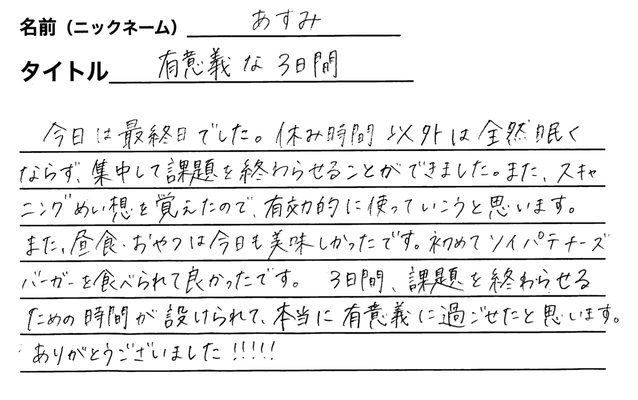 名前（ニックネーム） あすみ
タイトル 有意義な3日間
今日は最終日でした。休み時間以外は全然眠く
ならず、集中して課題を終わらせることができました。また、スキャ
ニングめい想を覚えたので、有効的に使っていこうと思います。
また、昼食・おやつは今日も美味しかったです。初めてソイパテチーズ
バーガーを食べられて良かったです。 3日間、課題を終わらせる
ための時間が設けられて、本当に有意義に過ごせたと思います。
ありがとうございました!!!!!